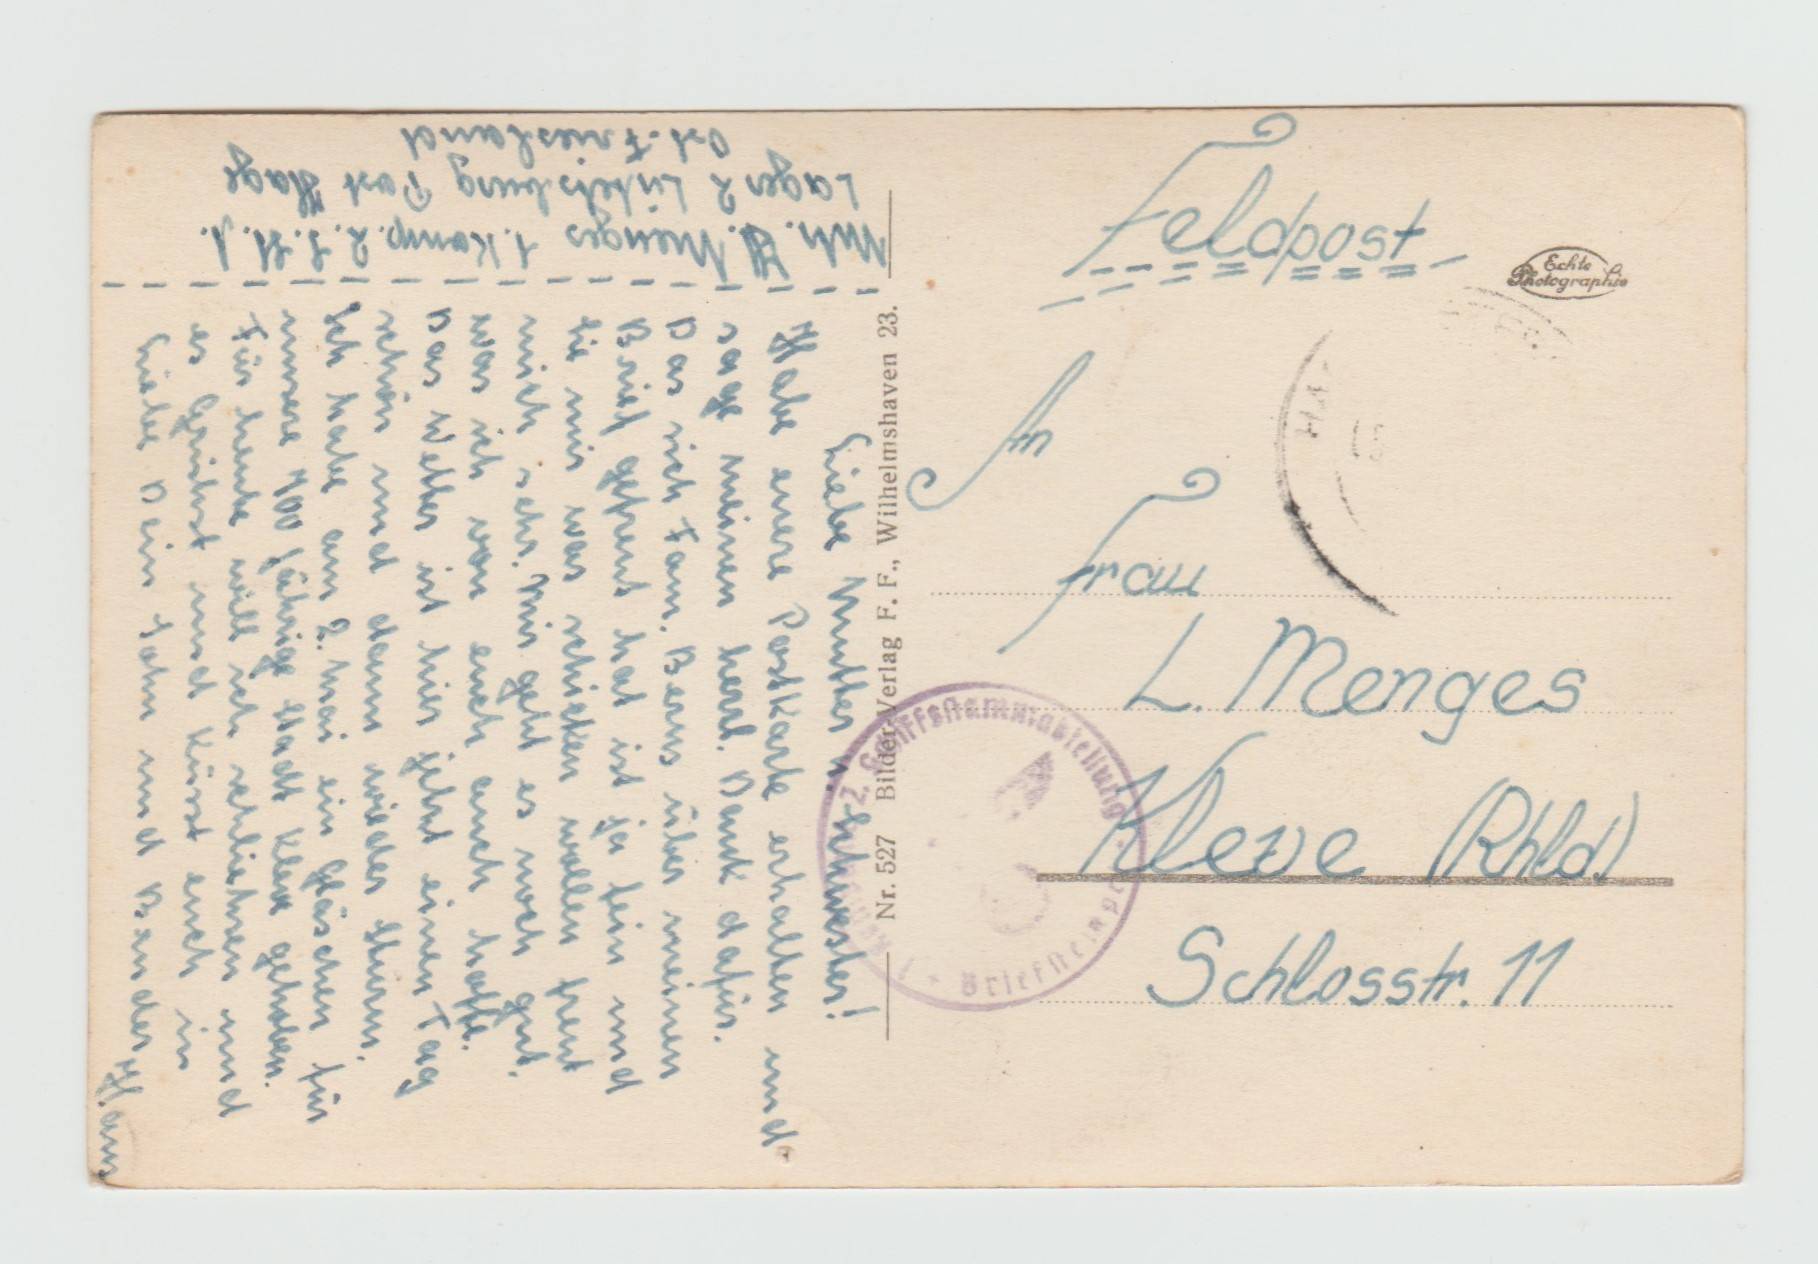 Feldpost
Echte
Photographie
An
Frau
L. Menges
Kleve (Rhld.)
Schlosstr. 11
Nr. 527 Bilder-Verlag F. F., Wilhelmshaven 23.
2. Schiffsstammabteilung
Briefstempel
Mtr. H. Menges 1. Komp. 2. S.St.A.
Lager 2 Lütetsburg Post Hage
Ost-Friesland
Liebe Mutter u. Schwester!
Habe eure Postkarte erhalten und
sage meinen herzl. Dank dafür.
Das sich Fam. Berns über meinen
Brief gefreut hat ist ja fein und
Sie mir was schicken wollen freut
mich sehr. Mir geht es noch gut,
was ich von euch auch hoffe.
Das Wetter ist hier jetzt einen Tag
schön und dann wieder Sturm.
Ich habe am 2. Mai ein Gläschen für
unsere 700 jährige Stadt Kleve gehoben.
Für heute will ich schließen und
es Grüßst und Küsst euch in
Liebe Dein Sohn und Bruder
Hans